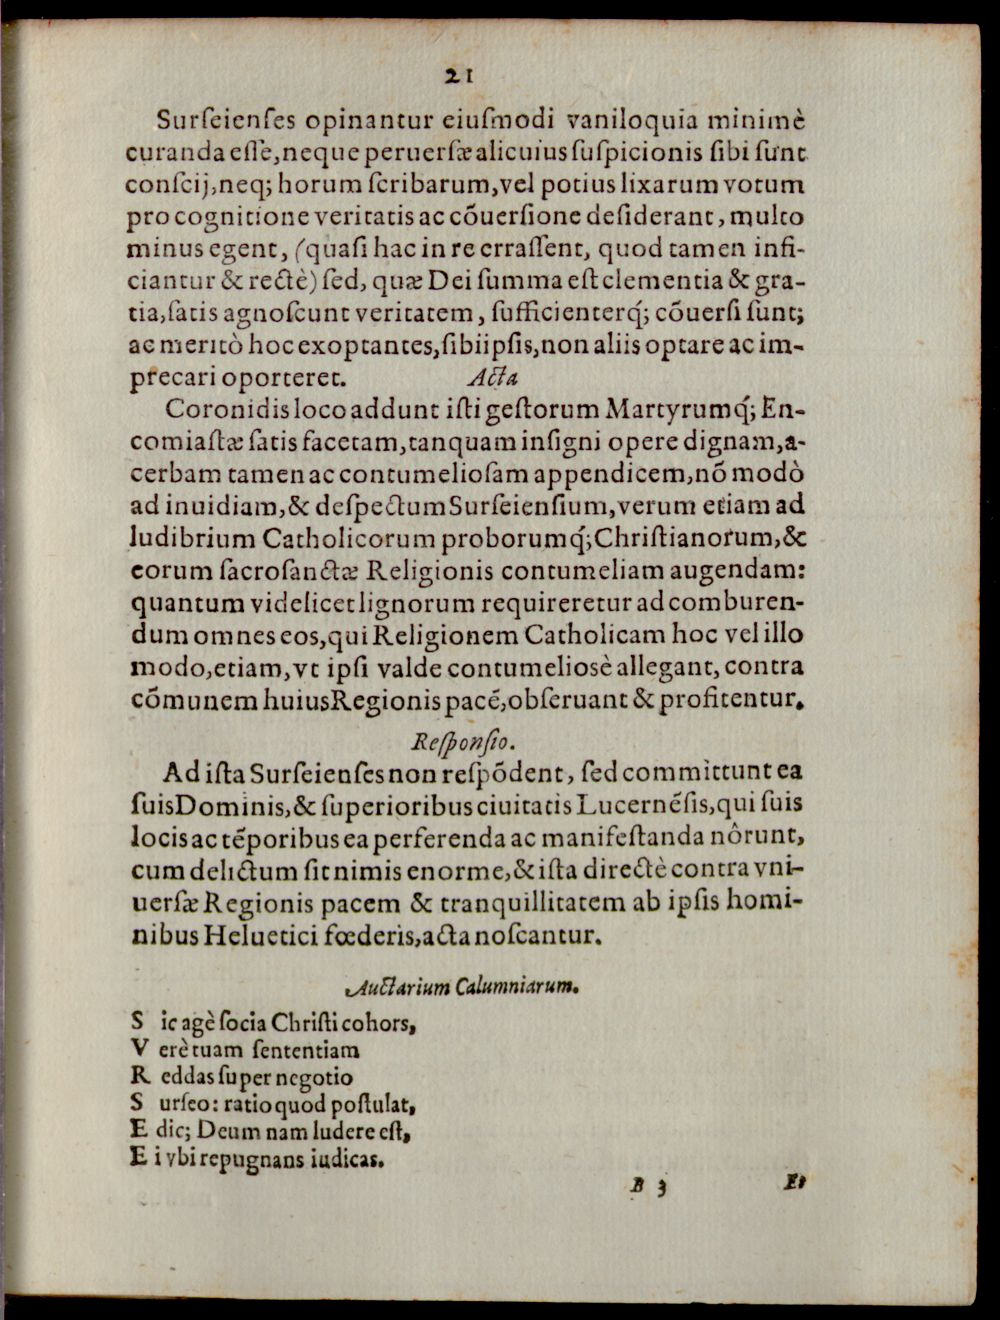 21
Surſeienſes opinantur eiuſmodi vaniloquia minimè
curanda eſſe, neque peruerſæ alicuius ſuſpicionis ſibi ſunt
conſcij, neq; horum ſcribarum, vel potius lixarum votum
pro cognitione veritatis ac cõuerſione deſiderant, multo
minus egent, (quaſi hac in re erraſſent, quod tamen infi-
ciantur & rectè) ſed, quæ Dei ſumma eſt clementia & gra-
tia, ſatis agnoſcunt veritatem, ſufficienterq́; cõuerſi ſunt;
ac meritò hoc exoptantes, ſibiipſis, non aliis optare ac im-
precari oporteret. Acta
Coronidis loco addunt iſti geſtorum Martyrumq́; En-
comiaſtæ ſatis facetam, tanquam inſigni opere dignam, a-
cerbam tamen ac contumelioſam appendicem, nõ modò
ad inuidiam, & deſpectum Surſeienſium, verum etiam ad
ludibrium Catholicorum proborumq́; Chriſtianorum, &
eorum ſacroſanctæ Religionis contumeliam augendam:
quantum videlicet lignorum requireretur ad comburen-
dum omnes eos, qui Religionem Catholicam hoc vel illo
modo, etiam, vt ipſi valde contumelioſè allegant, contra
cõmunem huius Regionis pacẽ, obſeruant & profitentur.
Reſponſio.
Ad iſta Surſeienſes non reſpõdent, ſed committunt ea
ſuis Dominis, & ſuperioribus ciuitatis Lucernẽſis, qui ſuis
locis ac tẽporibus ea perferenda ac manifeſtanda nôrunt,
cum delictum ſit nimis enorme, & iſta directè contra vni-
uerſæ Regionis pacem & tranquillitatem ab ipſis homi-
nibus Heluetici fœderis, acta noſcantur.
Auctarium Calumniarum.
S ic agè ſocia Chriſti cohors,
V erè tuam ſententiam
R eddas ſuper negotio
S urſeo: ratio quod poſtulat,
E dic; Deum nam ludere eſt,
E i vbi repugnans iudicas.
B 3 Et